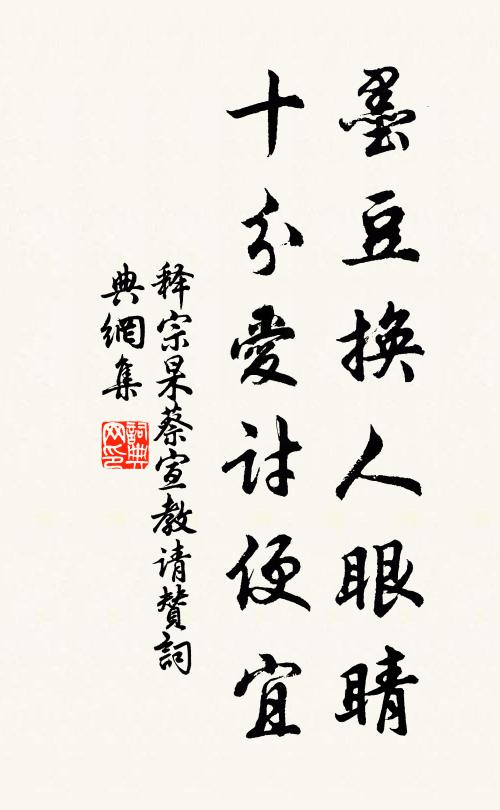 墨豆换人眼睛
十分愛討便宜
释宗杲蔡宣教请赞詞
典網集
詞典
网印